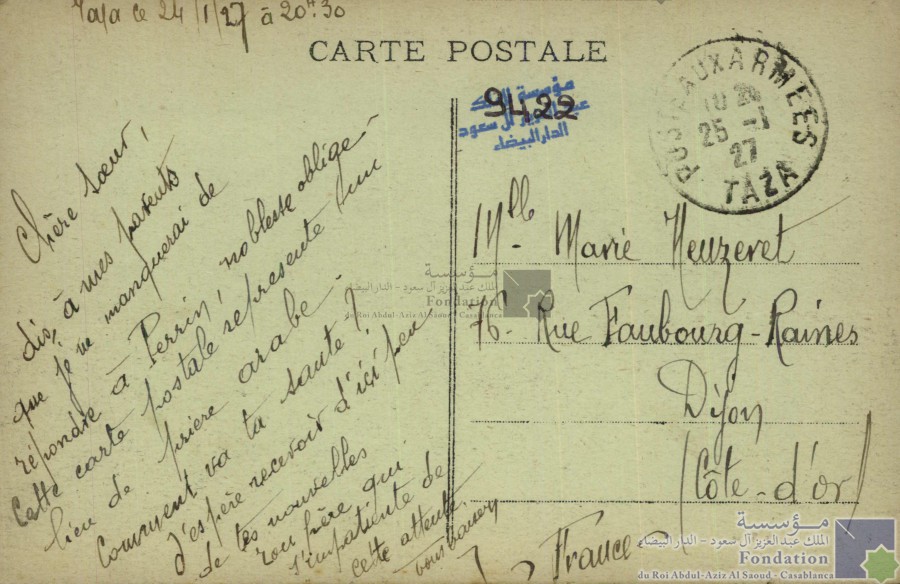 Taza ce 24/1/27 à 20H30
CARTE POSTALE
POSTE AUX ARMEES
25 -1
27
TAZA
9422
مؤسسة الملك
عبد العزيز آل سعود
الدار البيضاء
Chère sœur,
dis, à mes parents
que je ne manquerai de
répondre à Perrin, noblesse oblige -
Cette carte postale represente un
lieu de prière arabe -
Comment va ta santé ?
J'espère recevoir d'ici peu
de tes nouvelles
ton frère qui
s'impatiente de
cette attente
Mlle Marie Heuzeret
76 - Rue Faubourg-Raines
Dijon
(Côte-d'or)
France
مؤسسة
الملك عبد العزيز آل سعود – الدار البيضاء
Fondation
du Roi Abdul-Aziz Al Saoud - Casablanca
مؤسسة
الملك عبد العزيز آل سعود – الدار البيضاء
Fondation
du Roi Abdul-Aziz Al Saoud - Casablanca